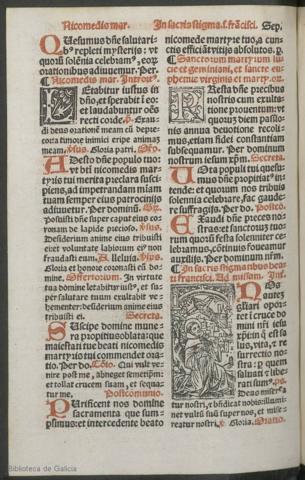 Nicomedis mar. In sacris stigma.s. frācisci. Sep.
QUesumus dñe salutari-
bꝰ repleti mysterijs: vt
quorū solēnia celebramꝰ, eoꝝ
orationibus adiuuemur. Per.
Nicomedis mar. Introitꝰ.
LEtabitur iustus in
dño, et sperabit ī eo:
et laudabuntur oēs
recti corde. Exau-
di deus orationē meam cū depre-
cor: a timore inimici eripe animaȝ
meam. Gloria patri.
ADesto dñe populo tuo:
vt bti nicomedis mart
yris tui merita preclara susci-
piens, ad impetrandam miām
tuam semper eius patrocinijs
adiuuetur. Per dominū.
Posuisti dñe super caput eius co-
ronam de lapide precioso.
Desiderium anime eius tribuisti
ei: et voluntate labiorum eiꝰ non
fraudasti eum. Alleluia.
Gloria et honore coronasti eū do-
mine. Offertorium. In virtute
tua domine letabitur iustꝰ, et su-
per salutare tuum exultabit ve-
hementer: desiderium anime eius
tribuisti ei. Secreta.
SUscipe domine mune-
ra propitius oblata: que
maiestati tue beati nicomedis
martyris tui commendet ora-
tio. Per do. Cōio. Qui vult ve-
nire post me, abneget semetipm:
et tollat crucem suam, et sequa-
tur me. Postcommunio.
PUrificent nos domine
sacramenta que sum-
psimus: et intercedente beato
nicomede martyre tuo, a cun-
ctis efficiāt vitijs absolutos. p.
Sanctorum martyrum lu-
cie et geminiani, et sancte eu-
phemie virginis et martyr. or.
PResta dñe precibus
nostris cum exulta-
tione prouentum: vt
quorum diem passio-
nis annua deuotione recoli-
mus, etiam fidei constantiam
subsequamur. Per dominum
nostrum iesum xp̄m. Secreta.
UOta populi tui quesu-
mus dñe propitiatꝰ in-
tende: et quorum nos tribuis
solennia celebrare, fac gau-
dere suffragijs. Per do. Postcō.
EXaudi dñe preces nos-
tras: et sanctorum tuo-
rum quorū festa solenniter ce-
lebramus, cōtinuis foueamur
auxilijs. Per dominum nr̄m.
In sacris stigmatibus bea-
ti francisci. Ad missam. Int.
NOs autē
gliari opor-
tet ī cruce do
mini nr̄i iesu
xp̄i: in q̄ est sa
lus, vita, et re
surrectio nos-
tra: p̄ quem
saluati et li-
berati sumꝰ. ps.
Deus misereꝛ̄
tur nostri, et bn̄dicat nobis: illumi-
net vultū suū super nos, et mise-
reatur nostri. Gloria. Oratio.
Biblioteca de Galicia